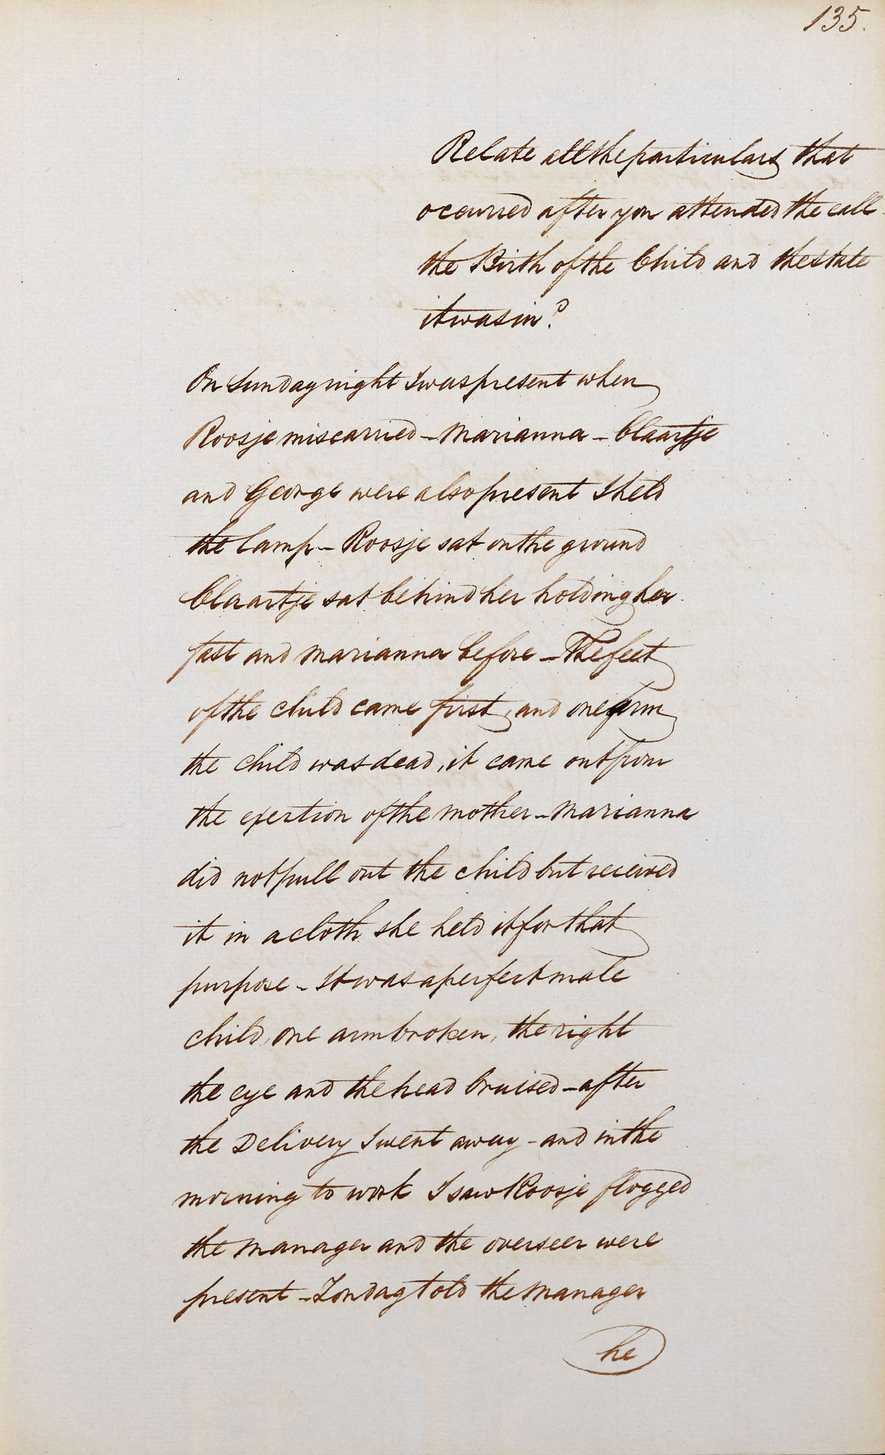 135.
Relate all the particulars that
ocurred after you attended the call
the Birth of the Child and the state
it was in?
On Sunday night I was present when
Roosje miscarried – Marianna – Claartje
and George were also present I held
the lamp – Roosje sat on the ground
Claartje sat behind her holding her
fast and Marianna before – The feet
of the child came first, and one arm
the child was dead, it came out from
the exertion of the mother – Marianna
did not pull out the child but received
it in a cloth she held it for that
purpose – It was a perfect male
child, one arm broken, the right
the eye and the head bruised – after
the Delivery I went away – and in the
morning to work I saw Roosje flogged
the manager and the overseer were
present – Zondag told the manager
he